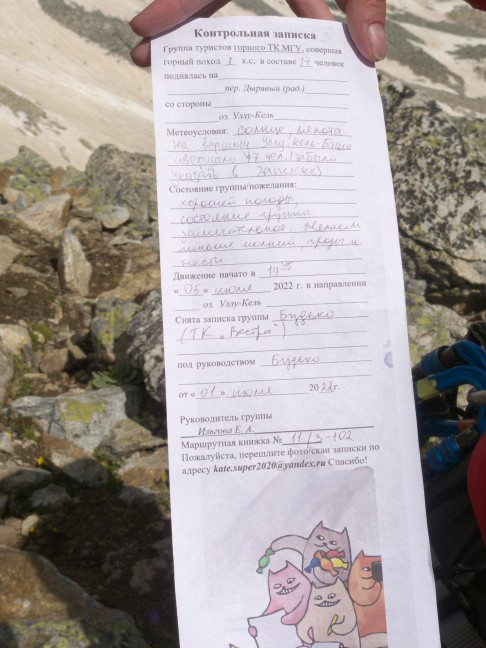 Контрольная записка
Группа туристов горного ТК МГУ, совершая
горный поход 1 к.с, в составе 17 человек
поднялась на
пер. Дырявый (рад.)
со стороны
оз. Уллу-Кель
Метеоусловия: солнце, теплота
На вершину Уллу-кель-баши
совершило 17 чел. (забыли
указать в записке)
Состояние группы/пожелания:
хорошей погоды,
состояние группы
замечательное. Желаем
меньше молний, грозы и
жести
Движение начато в 14
«05» июля 2022 г. в направлении
оз. Уллу-Кель
Снята записка группы Будько
(ТК "Вестра")
под руководством Будько
от «01» июля 2022г.
Руководитель группы
Ильгова Е. А.
Маршрутная книжка № 11/3-102
Пожалуйста, перешлите фото/скан записки по
адресу kate.super2020@yandex.ru Спасибо!